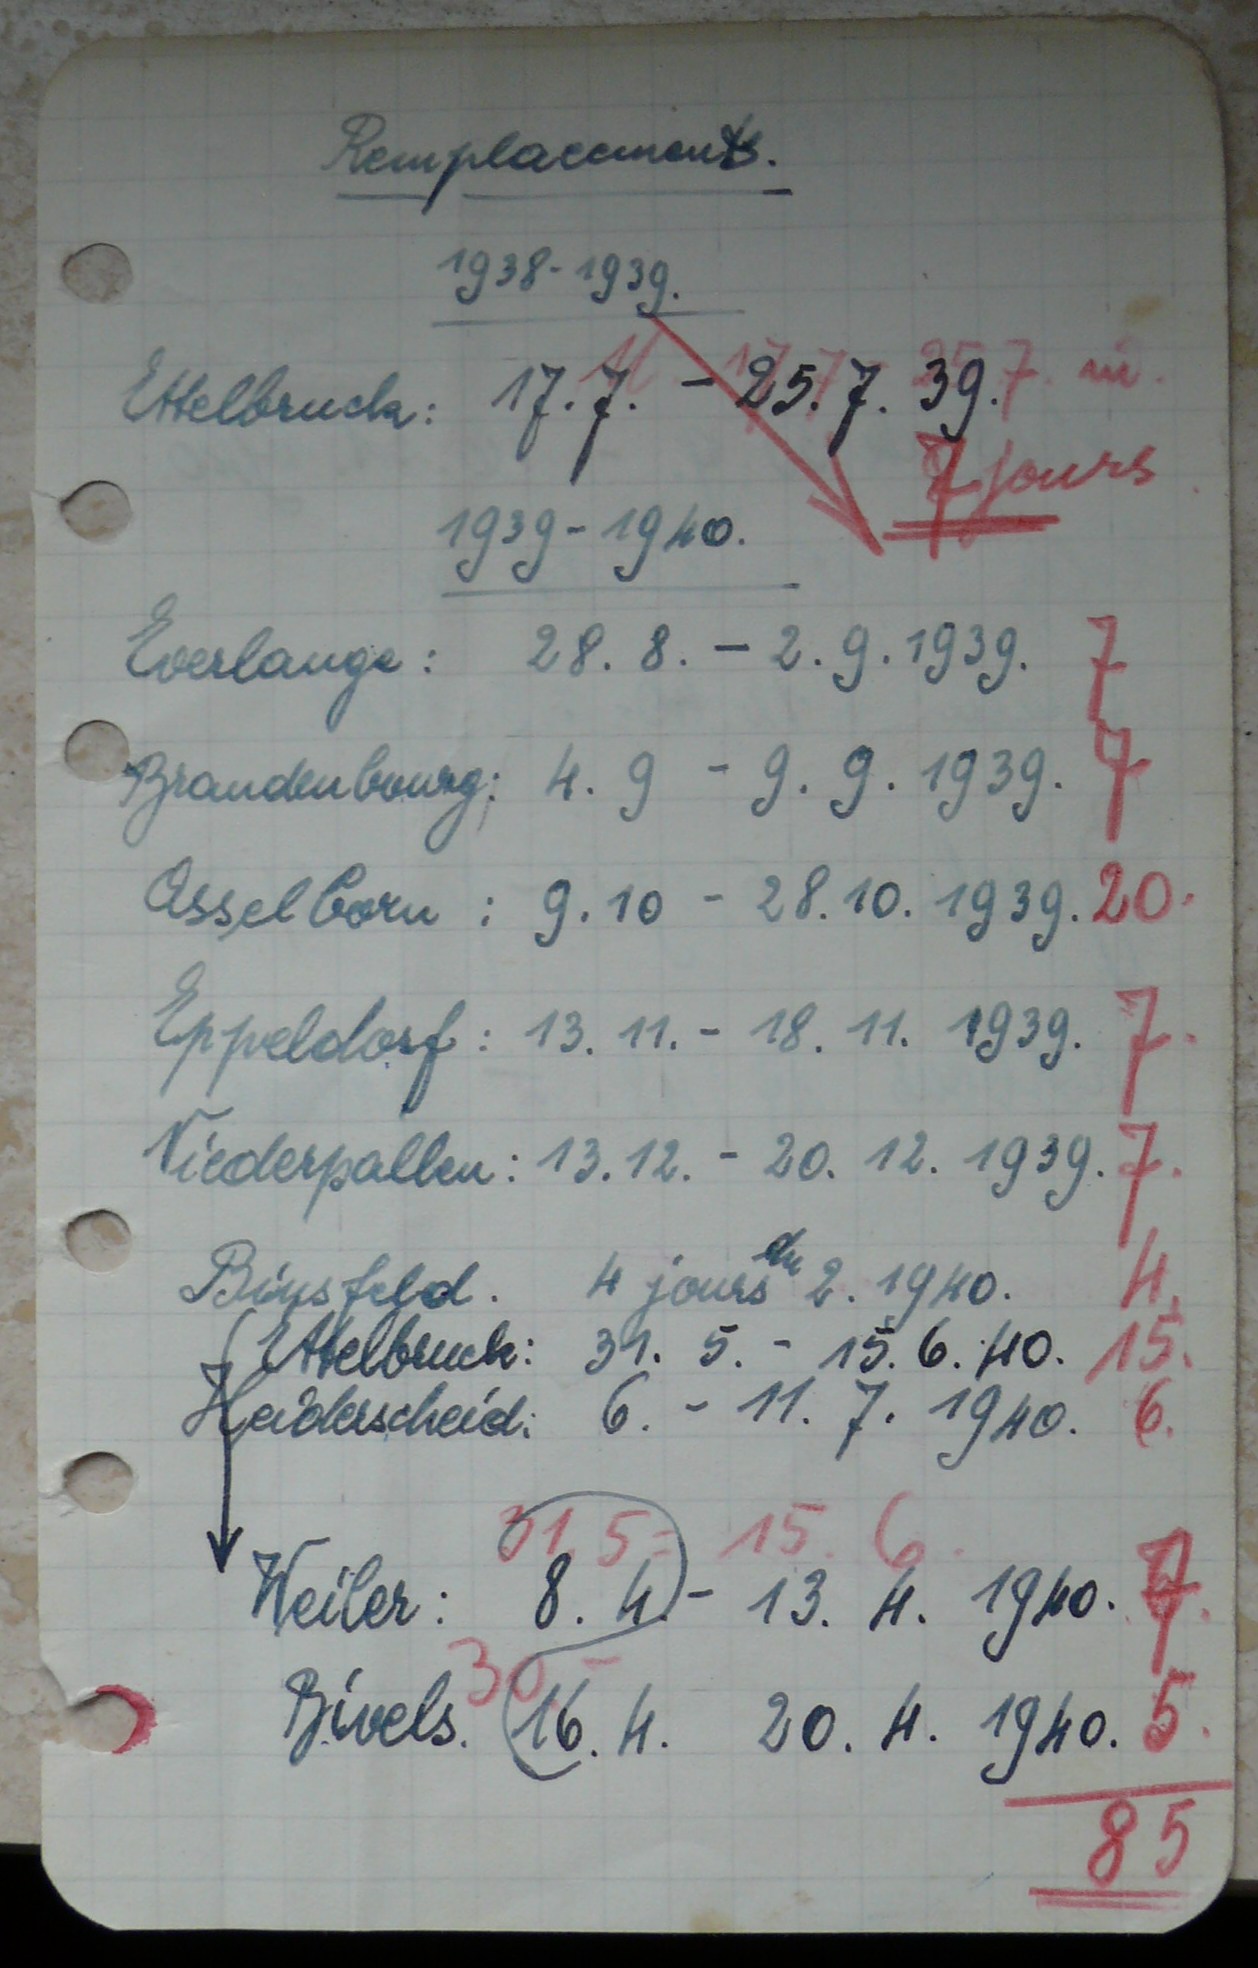 Remplacements.
1938-1939.
Ettelbruck: 17.7. - 25.7. 39.
7 jours
1939-1940.
Everlange: 28. 8. - 2. 9. 1939. 7
Brandenbourg: 4. 9 - 9. 9. 1939. 7
Asselborn: 9. 10 - 28. 10. 1939. 20.
Eppeldorf: 13. 11. - 18. 11. 1939. 7.
Niederpallen: 13. 12. - 20. 12. 1939. 7.
Binsfeld. 4 jours du 2. 1940. 4.
Ettelbruck: 31. 5. - 15. 6. 40. 15.
Heiderscheid: 6. - 11. 7. 1940. 6.
31. 5 - 15. 6.
Weiler: 8. 4. - 13. 4. 1940. 7.
30 -
Bivels. 16. 4. 20. 4. 1940. 5.
85